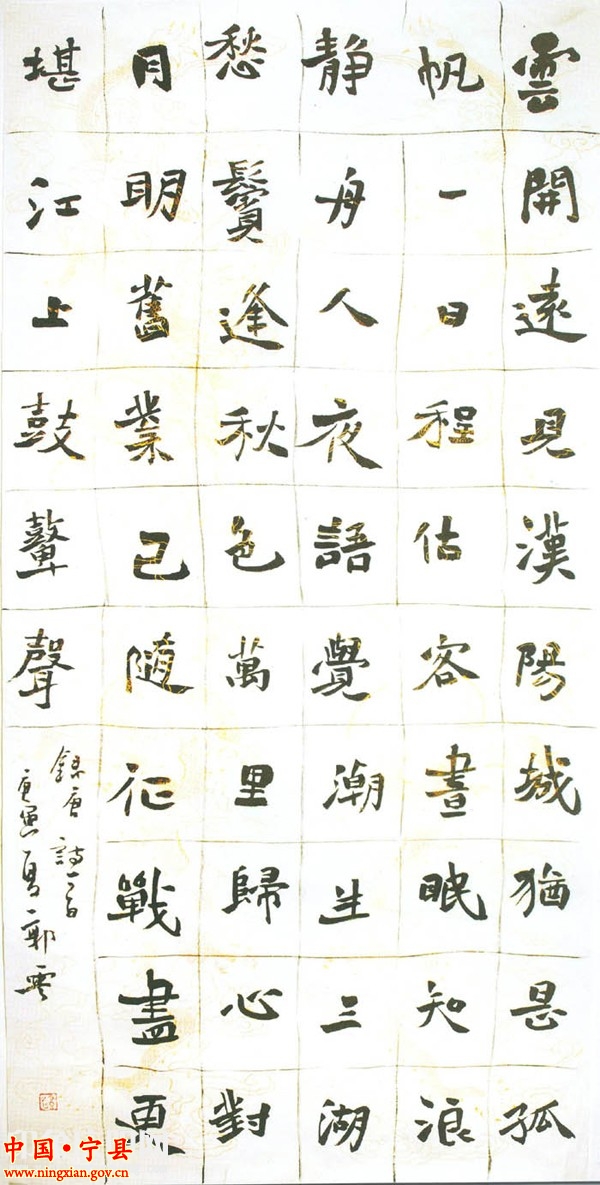 雲開遠見漢陽城猶是孤
帆一日程估客晝眠知浪
静舟人夜語覺潮生三湖
愁鬢逢秋色萬里歸心對
月明舊業已随征戰盡更
堪江上鼓鼙聲
錄唐詩一首
庚寅夏郭雲
中国·宁县
www.ningxian.gov.cn